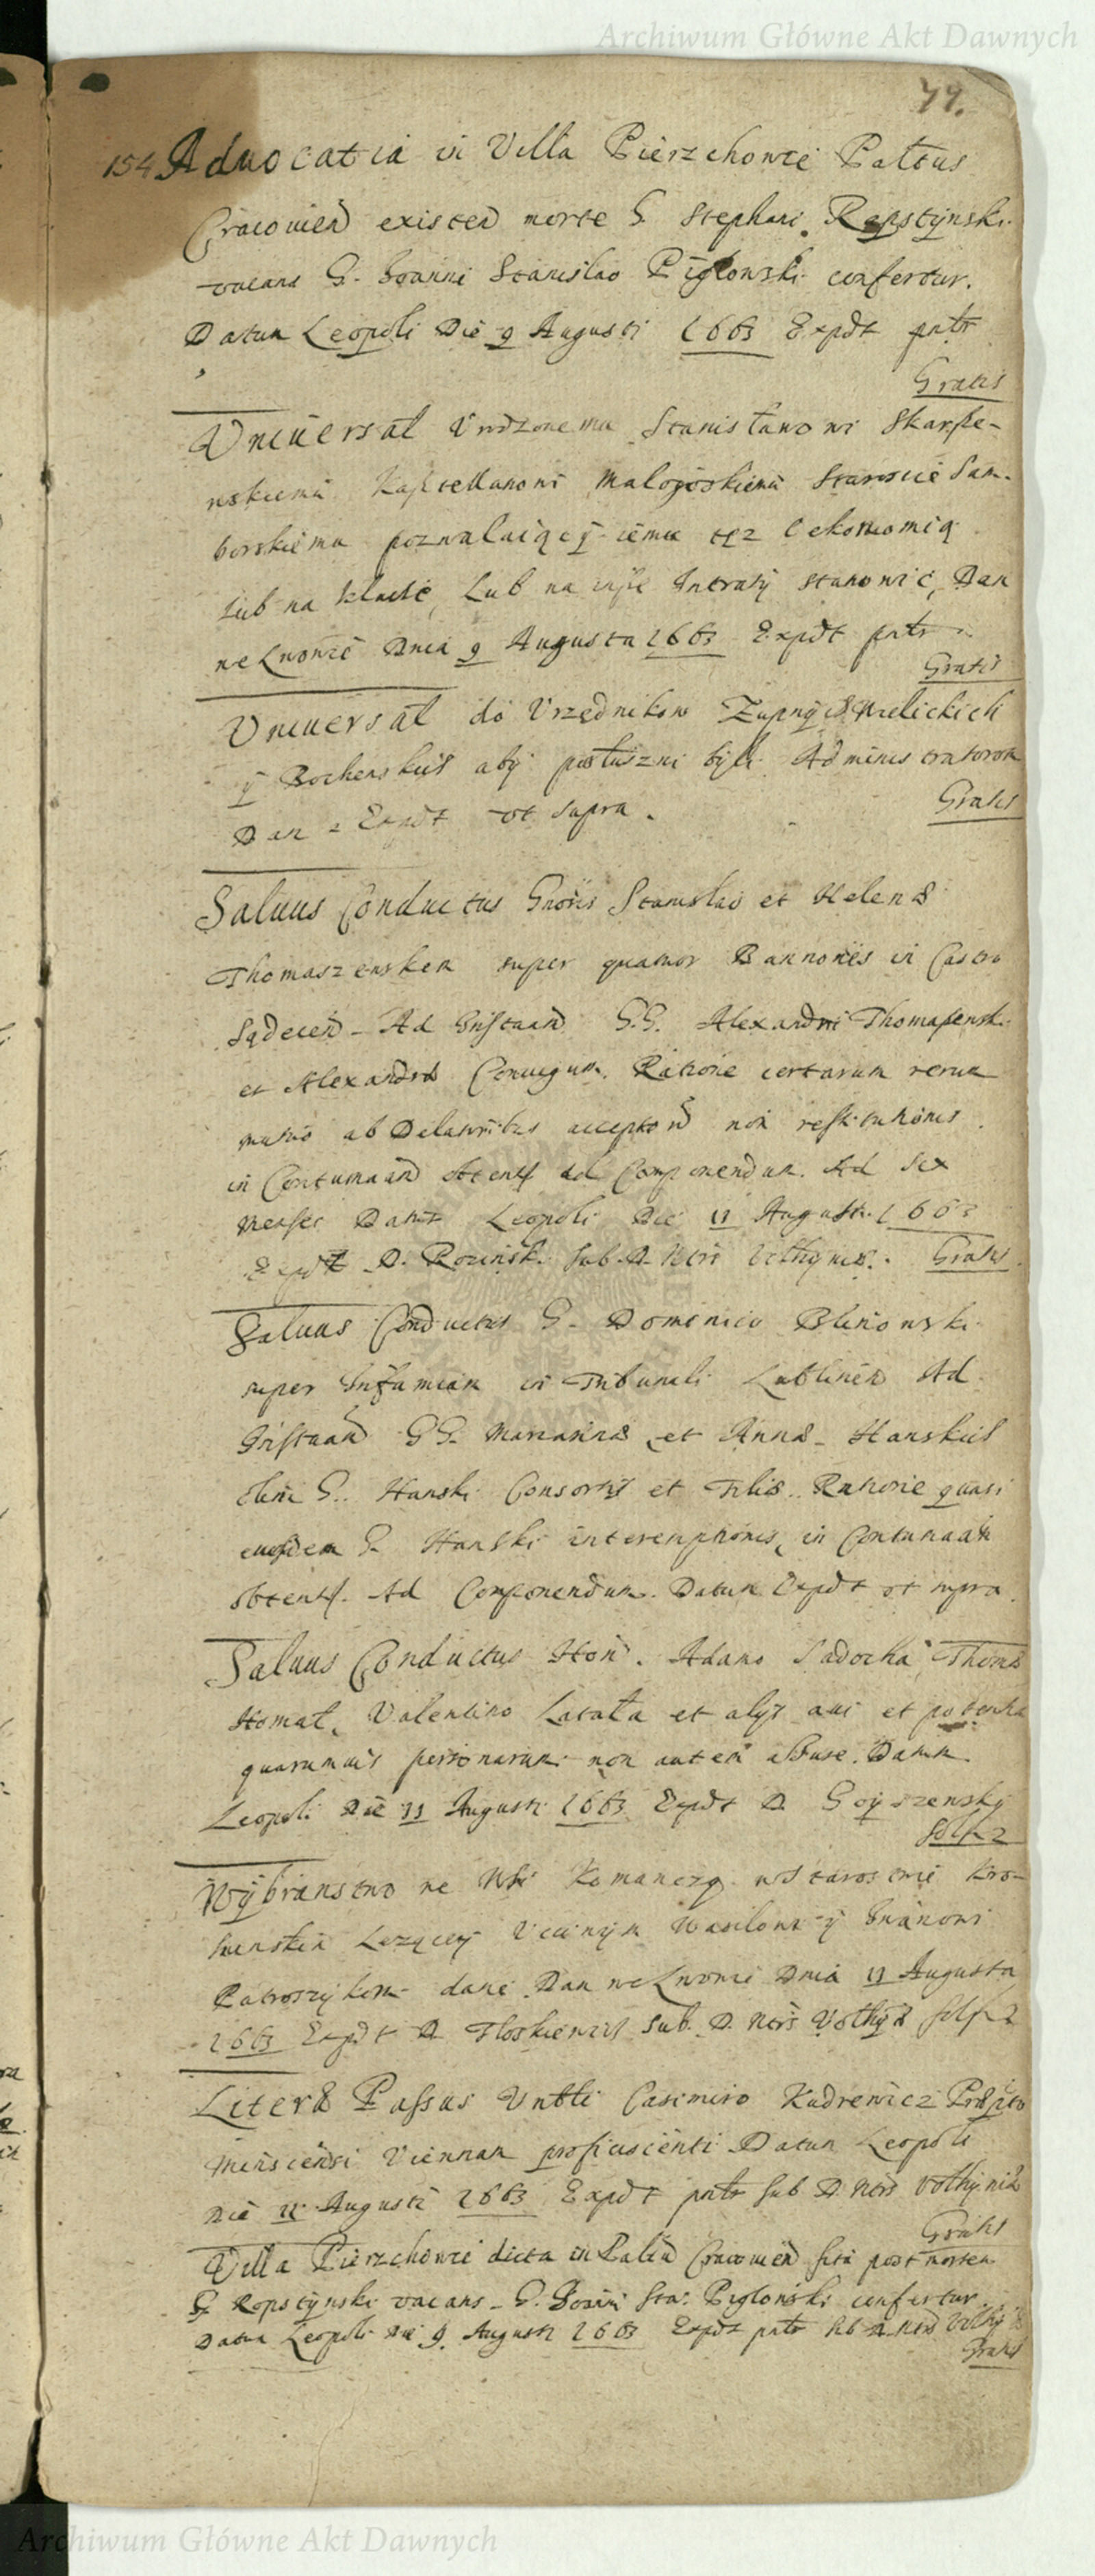 Archiwum Główne Akt Dawnych
79.
154 Aduocatia in Villa Pierzchowce Pałtus
Cracouien existen morte G Stephani Ropstynski
vacans G. Joanni Stanislao Pigłowski confertur.
Datum Leopoli Die 9 Augusti 1663 Expdt pntr
Gratis
Vniuersał Vrodzonemu Stanisławowi Skarsze-
wskiemu Kasztellanowi Małogoskiemu Staroscie Sam-
borskiemu pozwalaiący iemu tęz Oekonomią
lub na Lub na Intraty stanowic, Dan
we Lwowie Dnia 9 Augusta 1663 Expdt pntr
Gratis
Vniuersał do Vrzędnikow Zupnych Wielickich
y Bochenskich aby posłuszni byli Administratorom
Dan Expdt vt supra.
Gratis
Saluus Conductus Gnosis Stanislao et Helenæ
Thomaszewskim super quatuor Bannones in Castro
Sądecen Ad Instaan G.G. Alexandri Thomaszewski
et Alexandræ Coniugum. Ratione certarum rerum
mutuo ab Delatoribus accepto non restitutionis
in Contumaan obtent ad Componendum. Ad sex
Menses Datus Leopoli Die 11 Augusti 1663
Expdt D. Rozinski Sub. D. Ntrs Volhyniæ. Gratis
Saluus Conductus G. Dominico Blinowski
super Infamiam in Tribunali Lublinen Ad
Instaan GG. Mariannæ et Annæ Hanskich
olim G. Hanski Consortis et Filiæ. Ratione quasi
eiusdem G. Hanski interemptionis in Contumaam
obtent. Ad Componendum. Datum Expdt vt supra.
Saluus Conductus Hon. Adamo Sadocha Thomæ
Homał, Valentino Łatała et alys aui et potentia
quarumuis personarum non autem abuse. Datum
Leopoli Die 11 Augusti 1663 Expdt D. Goyszensky
sol 2
Wybranstwo we Wsi Komanczą w Starostwie Kro-
Lezącey Vcciwym Wasilowi y Iwanowi
dane. Dan we Lwowie Dnia 11 Augusta
1663 Expdt D. Sub. D. Ntrs Volhyæ sol 2
Literæ Passus Vnbli Casimiro Kudrewicz Præpto
Minscensi Viennam proficiscenti Datum Leopoli
Die 11 Augusti 1663 Expdt pntr Sub D. Ntrs Volhyniæ
Gratis
Villa Pierzchowce dicta in Palatu Cracouien sita post mortem
G Ropstynski vacans G. Joanni Sta: Pigłowski confertur
Datum Leopoli die 9 Augusti 1663 Expdt pntr sub D. Ntrs Volhyæ
Gratis
Archiwum Główne Akt Dawnych